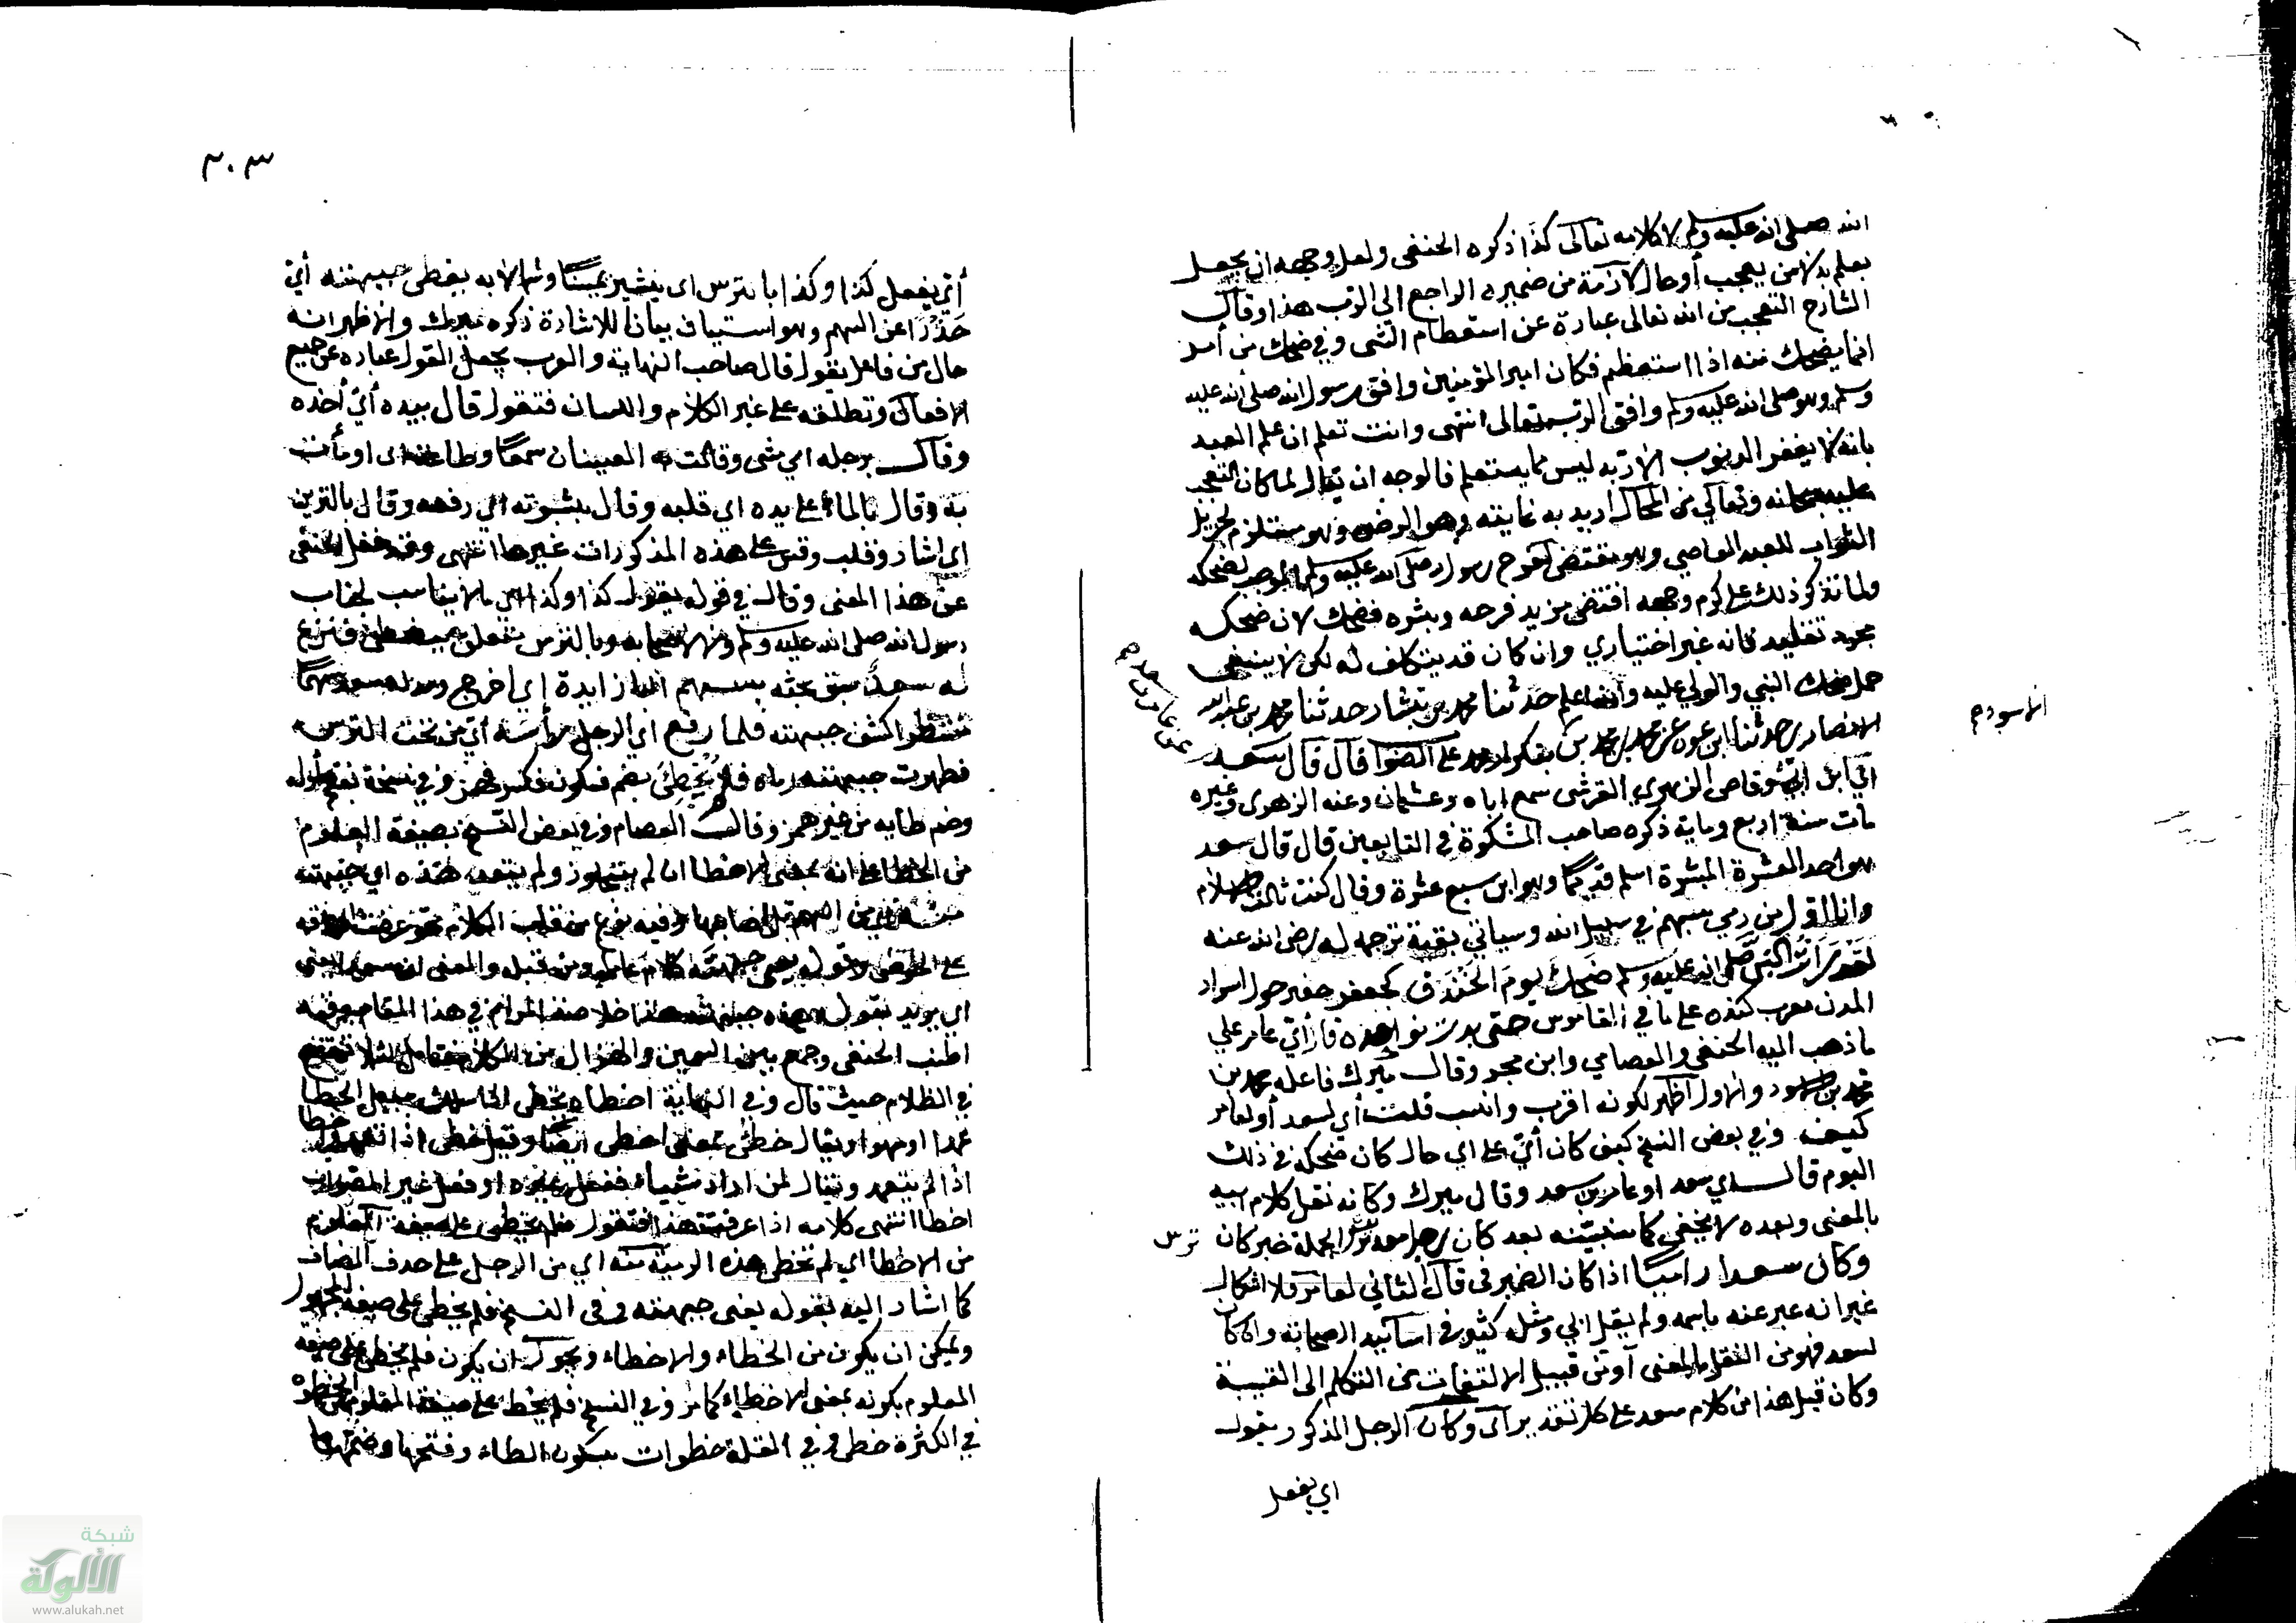 الله صلى الله عليه وسلم لا كلامه تعالى كذا ذكره الحنفى ولعل وجهه ان يجعل
يعلم بدلا من يعجب أو حالا لازمة من ضميره الراجع الي الرب هذا وقال
الشارح التعجب من الله تعالى عبارة عن استعظام الشى وفي ضحك من أمر
انما يضحك منه اذا استعظم فكان امير المؤمنين وافق رسول الله صلى الله عليه
وسلم وهو صلى الله عليه وسلم وافق الرب تعالى انتهى وانت تعلم ان علم العبد
بانه لا يغفر الذنوب الا ربه ليس مما يستعلم فالوجه ان يقال لما كان التعجب
عليه سبحانه وتعالي من المحال اريد به غايته وهو الرضى وهو مستلزم لجزيل
الثواب للعبد العاصي وهو مقتضى لفرح رسول الله صلى الله عليه وسلم الموجب لضحكه
ولما تذكر ذلك علي كرم وجهه اقتضى مزيد فرحه وبشره فضحك لان ضحكه
مجرد تقليد فانه غير اختياري وان كان قد يتكلف له لكن لا ينبغى
حمل ضحك النبي والولي عليه والله اعلم حدثنا محمد بن بشار حدثنا محمد بن عبد الله
الانصاري حدثنا ابن عون عن محمد بن محمد بن الاسود م
عن عامر بن سعد م
على الصواب قال قال سعد
اي ابن ابي وقاص الزهري القرشى سمع اباه وعثمان وعنه الزهرى وغيره
مات سنة اربع وماية ذكره صاحب المشكوة في التابعين قال قال سعد
هو احد العشرة المبشرة اسلم قديما وهو ابن سبع عشرة وقال كنت ثالث الاسلام
وانا اول من رمي بسهم في سبيل الله وسياتي بقية ترجمه له رضى الله عنه
لقد رأيت النبي صلى الله عليه وسلم ضحك يوم الخندق كجعفر حفير حول اسوار
المدن معرب كنده على ما في القاموس حتى بدت نواجذه قال أي عامر علي
ما ذهب اليه الحنفي والعصامي وابن حجر وقال ميرك فاعله محمد بن
محمد بن الاسود والاول اظهر لكونه اقرب وانسب قلت أي لسعد أو لعامر
كيف وفي بعض النسخ كيف كان أي على اي حال كان ضحكه في ذلك
اليوم قال اي سعد او عامر بن سعد وقال ميرك وكانه نقل كلام ابيه
بالمعنى وبعده لا يخفى كما سنبينه بعد كان رجل معه ترس الجملة خبر كان
ترس
وكان سعد راميا اذا كان الضمير في قال الثاني لعامر فلا اشكال
غير انه عبر عنه باسمه ولم يقل ابي ومثله كثير في اسانيد الصحابة وان كان
لسعد فهو من النقل بالمعنى أو من قبيل الالتفات من التكلم الى الغيبة
وكان قبل هذا من كلام سعد على كل تقدير اى وكان الرجل المذكور يقول
اي يفعل
٣٠٣
أي يفعل كذا وكذا بالترس اى يشير يمينا وشمالا به يغطى جبهته أي
حذرا عن السهم وهو استيناف بيان للاشارة ذكره ميرك والاظهر انه
حال من فاعل يقول قال صاحب النهاية والعرب يجعل القول عبارة عن جميع
الافعال وتطلقه على غير الكلام واللسان فتقول قال بيده أي أخذه
وقال برجله اي مشى وقالت العينان سمعا وطاعة اى اومأت
به وقال بالماء على يده اي قلبه وقال بثوبه اي رفعه وقال بالترس
اى اشار وقلب وقس على هذه المذكورات غيرها انتهى وقد غفل الحنفى
عن هذا المعنى وقال في قوله يقول كذا وكذا اى ما لا يناسب لجناب
رسول الله صلى الله عليه وسلم ولا لاصحابه وبالترس متعلق بيغطى فنزع
له سعد سبق بحثه بسهم الباء زايدة اي اخرج
منتظرا كشف جبهته فلما رفع اي الرجل رأسه أي من تحت الترس
فظهرت جبهته رماه فلم يخطئ بضم فسكون فكسر فهمز وفي نسخة بفتح اوله
وضم طايه من غير همز وقال العصام وفي بعض النسخ بصيغة المعلوم
من الخطا على انه بمعنى الاخطا اى لم يتجاوز ولم يتعد هذه اي جبهته
على الحوض وقوله يعنى جبهته كلام عامر او من قبله والمعنى ان سعدا يعنى
اي يريد بقوله هذه جبهته هذا خلاصة المرام في هذا المقام
اطنب الحنفى وجمع بين السمين والهزال من الكلام
في الظلام حيث قال وفي النهاية اخطا يخطى اذا سلك سبيل الخطا
عمدا او سهوا ويقال خطئ بمعنى اخطى ايضا وقيل خطى اذا تعمد واخطا
اذا لم يتعمد ويقال لمن اراد شيئا ففعل غيره او فعل غير الصواب
اخطا انتهى كلامه اذا عرفت هذا فتقول فلم يخطى على صيغة المعلوم
من الاخطا اي لم تخطى هذه الرمية منه اي من الرجل على حدف المضاف
كما اشار اليه بقوله يعنى جبهته وفى النسخ فلم يخطى على صيغة المجهول
ويمكن ان يكون من الخطاء والاخطاء ويجوز ان يكون فلم يخطى على صيغة
المعلوم بكونه بمعنى الاخطاء كما مر وفي النسخ فلم يخط على صيغة المعلوم من الخطوة
في الكثرة خطى وفي القلة خطوات بسكون الطاء وفتحها وضمها
شبكة
الألوكة
www.alukah.net